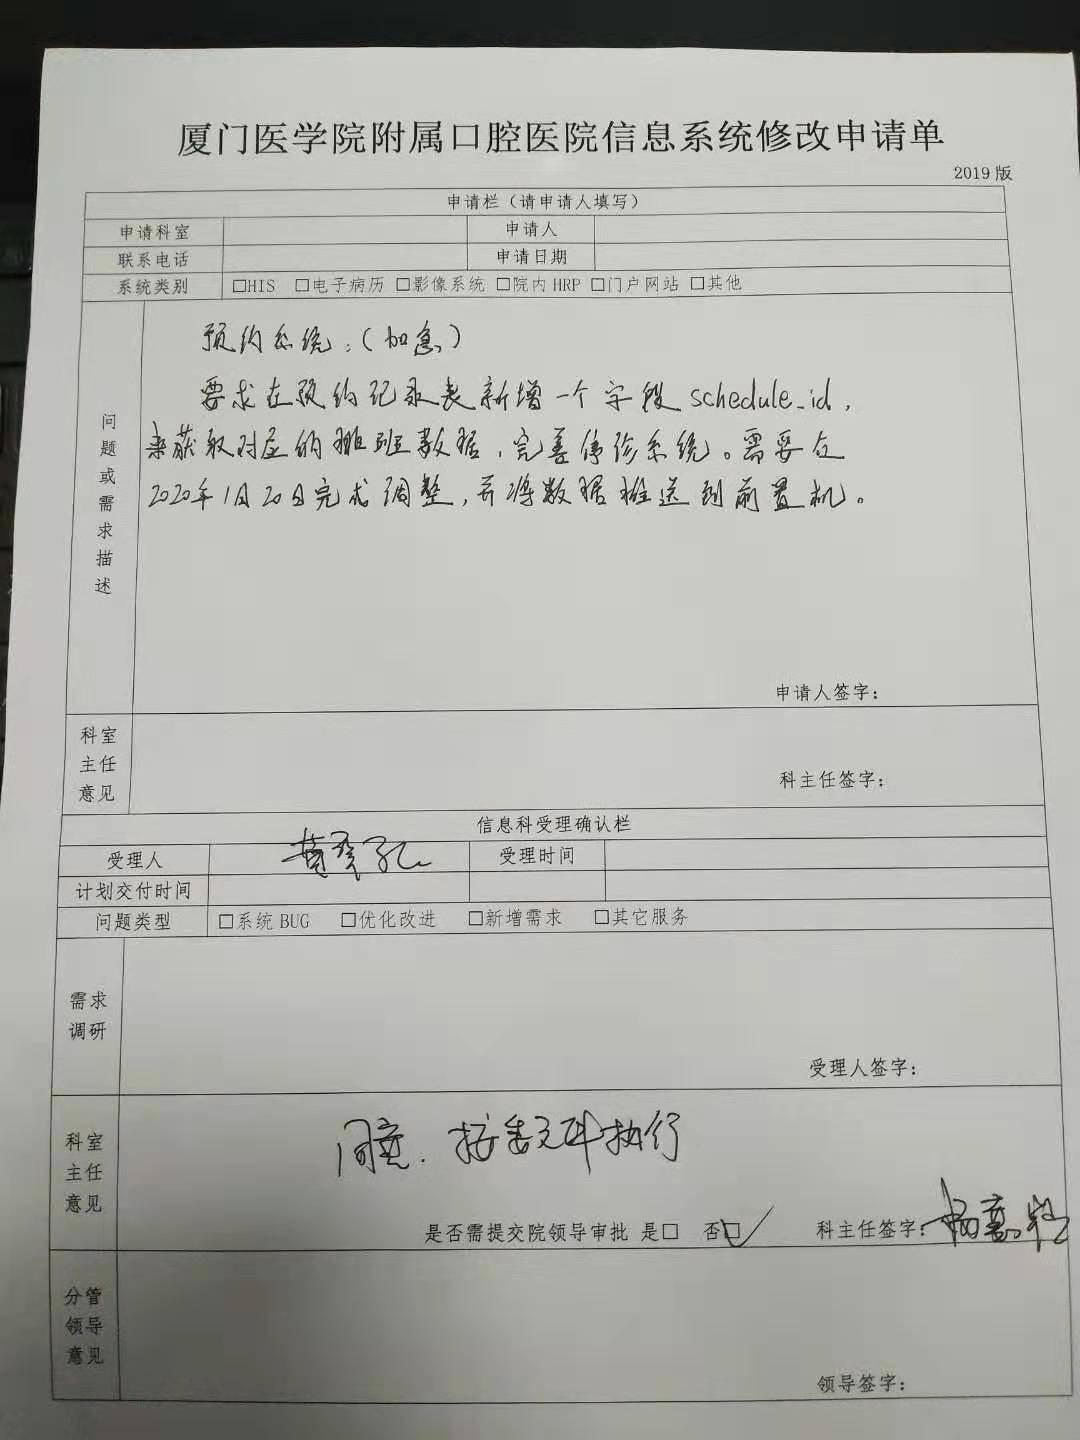 厦门医学院附属口腔医院信息系统修改申请单
2019 版
申请栏（请申请人填写）
申请科室 申请人
联系电话 申请日期
系统类别 □HIS □电子病历 □影像系统 □院内 HRP □门户网站 □其他
问题或需求描述
预约系统：（加急）
要求在预约记录表新增一个字段 schedule_id，
来获取对应的排班数据，完善停诊系统。需要在
2020年1月20日完成调整，并将数据推送到前置机。
申请人签字：
科室主任意见
科主任签字：
信息科受理确认栏
受理人 受理时间
计划交付时间
问题类型 □系统 BUG □优化改进 □新增需求 □其它服务
需求调研
受理人签字：
科室主任意见
同意．按委文件执行
是否需提交院领导审批 是□ 否□✓ 科主任签字：
分管领导意见
领导签字：